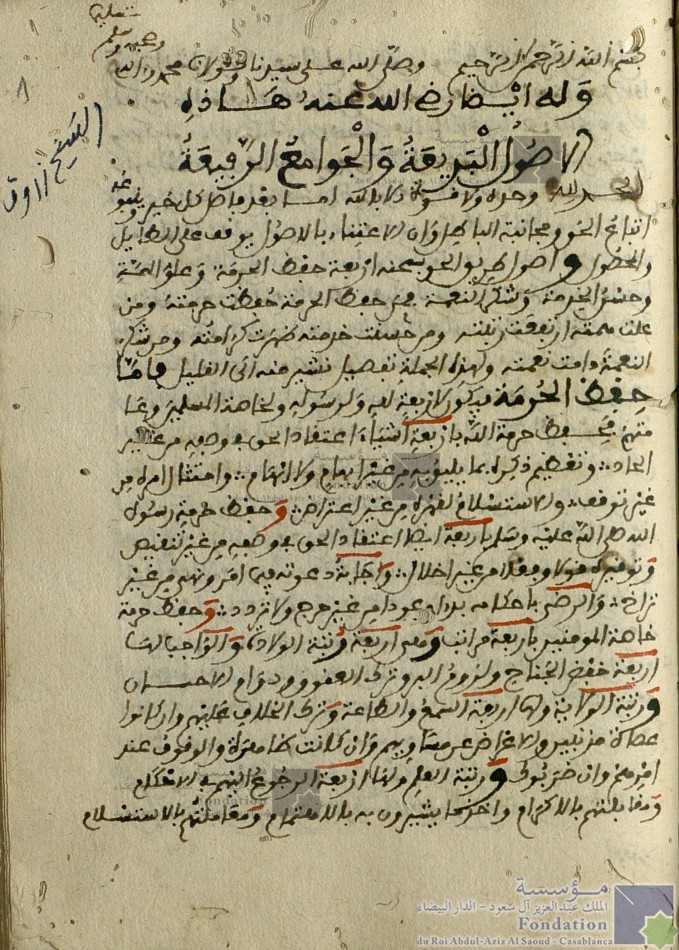 تسليما
وصحبه وسلم
بسم الله الرحمن الرحيم وصلى الله على سيدنا ومولانا محمد وءاله
وله ايضا رضي الله عنه هاذه
الاصول البديعة والجوامع الرفيعة
الشيخ زروق
الحمد لله وحده ولا قوة الا بالله اما بعد فاصل كل خير وينبوعه
اتباع الحق ومجانبة الباطل وان الاعتناء بالاصول يوقف على الطايل
والمحصول واصول طريق الحق سبحنه اربعة حفظ الحرمة وعلو الهمة
وحسن الخدمة وشكر النعمة فمن حفظ الحرمة حفظت حرمته ومن
علت همته ارتفعت رتبته ومن حسنت خدمته ظهرت كرامته ومن شكر
النعمة دامت نعمته ولهذه الجملة تفصيل نشير منه الى القليل فاما
حفظ الحرمة فيكون لاربعة لله ولرسوله ولخاصة المسلمين وعا
متهم فحفظ حرمة الله باربعة اشياء اعتقاد الحق في وصفه من غير
الحاد وتعظيم ذكره بما يليق به من غير ابهام ولا ايهام وامتثال امره من
غير توقف والاستسلام لقهره من غير اعتراض وحفظ حرمة رسوله
صلى الله عليه وسلم باربعة ايضا اعتقاد الحق في وصفه من غير تنقيص
وتوقيره قولا وفعلا من غير اخلال واجابة دعوته في امر ونهي من غير
تراخ والرضى باحكامه بدءا وعودا من غير حرج ولا تردد وحفظ حرمة
خاصة المومنين باربعة مراتب وهي اربعة رتبة الولادة والواجب لها
اربعة خفض الجناح ولزوم البر وترك العقوق ودوام الاحسان
ورتبة الولاية ولها اربعة السمع والطاعة وترك الخلاف عليهم وان كانوا
عصاة مذنبين والاغضاء عن مساويهم وان كانت والوقوف عند
امرهم وان ضربوك ورتبة العلم ولها اربعة الرجوع اليهم في الاحكام
ومقابلتهم بالاكرام واخذ ما يشيرون به بالاهتمام ومعاملتهم بالاستسلام
مؤسسة
الملك عبد العزيز آل سعود - الدار البيضاء
Fondation
du Roi Abdul-Aziz Al Saoud - Casablanca